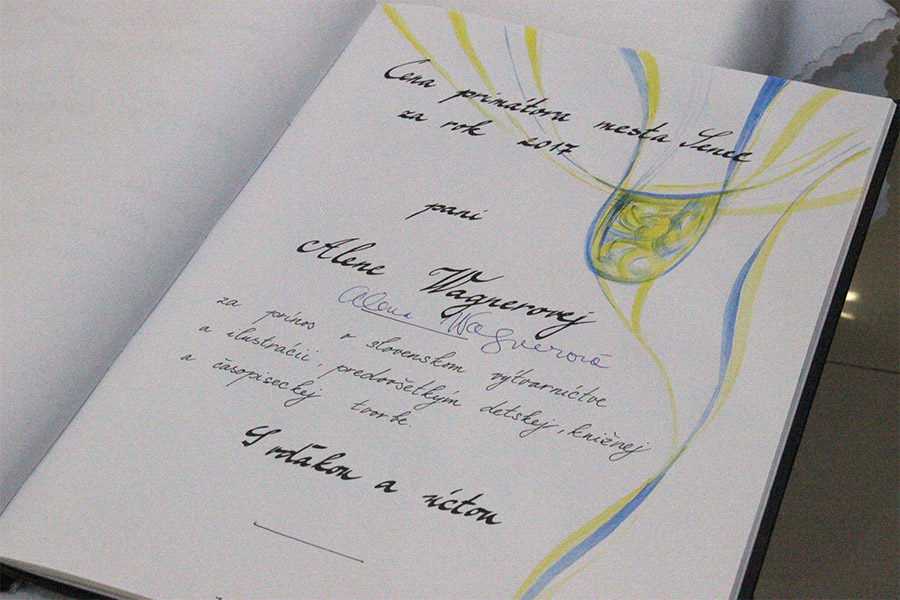 Cena primátora mesta Senec
za rok 2017
pani
Alene Wagnerovej
Alena Wagnerová
za prínos v slovenskom výtvarníctve
a ilustrácií, predovšetkým detskej, knižnej
a časopiseckej tvorbe.
S vďakou a úctou